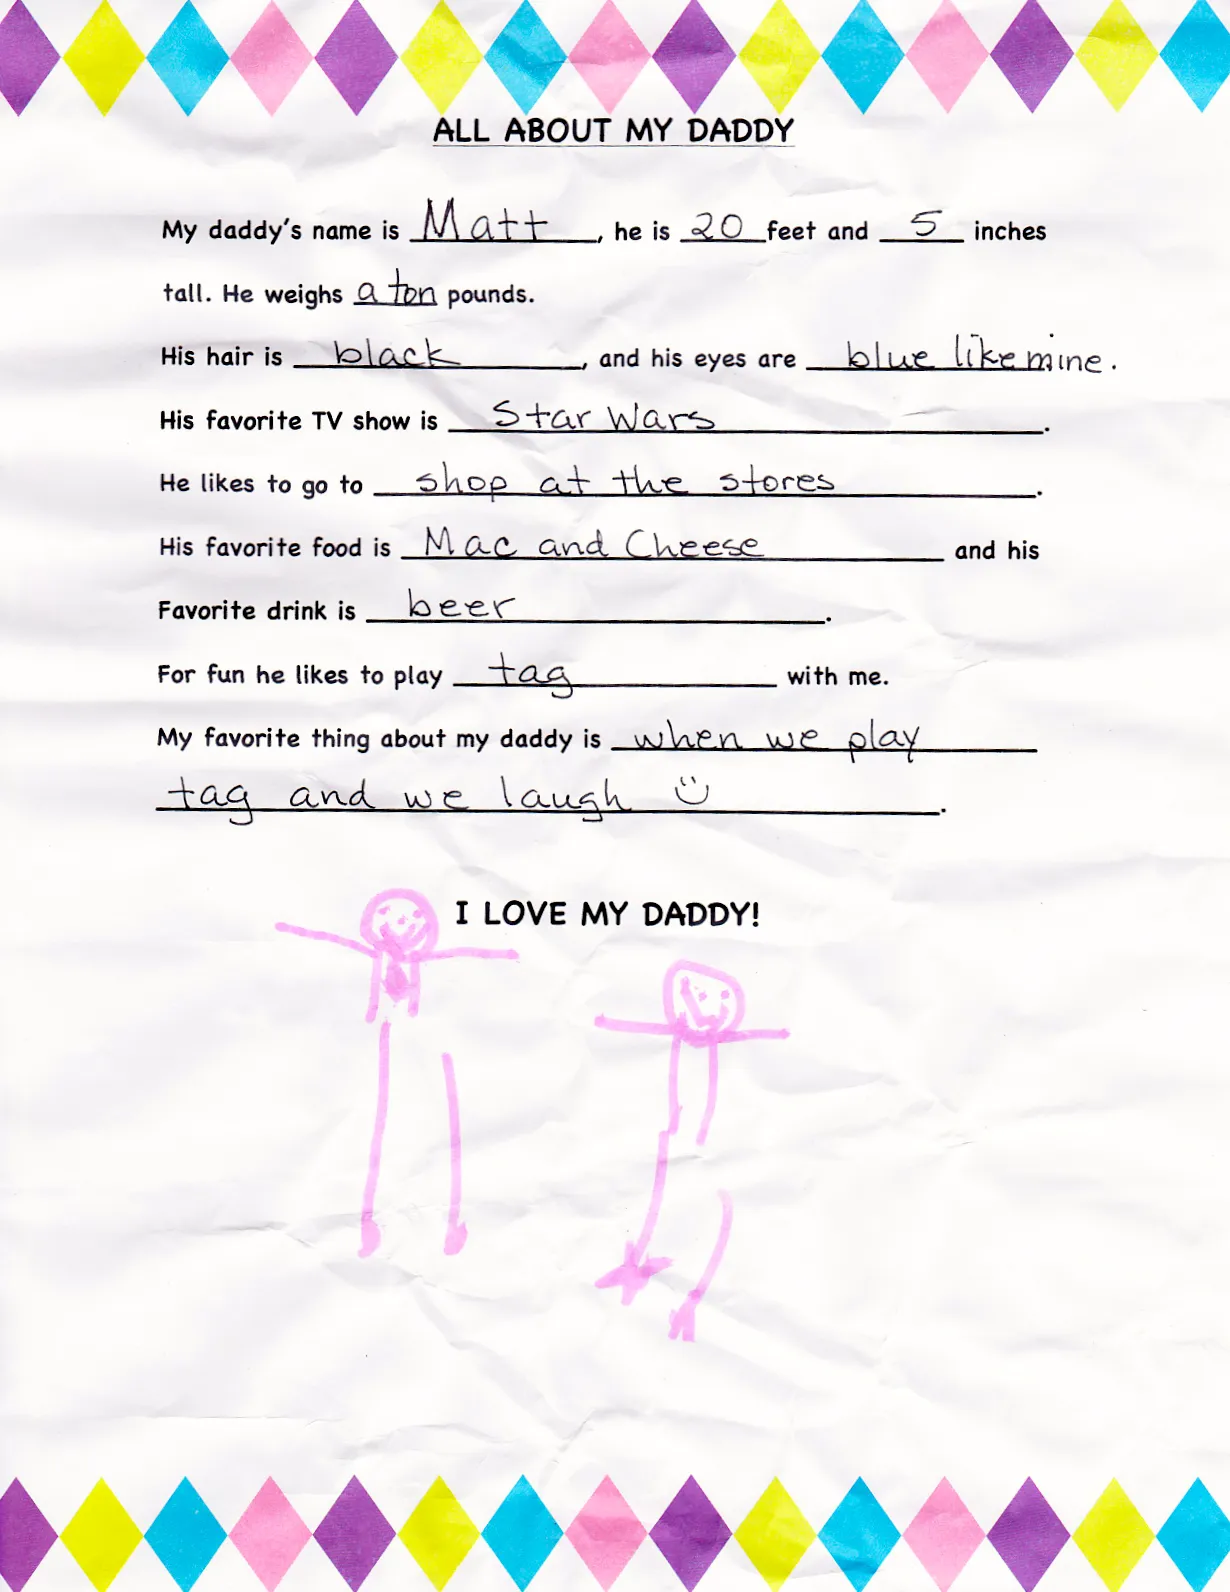 ALL ABOUT MY DADDY
My daddy's name is Matt, he is 20 feet and 5 inches
tall. He weighs a ton pounds.
His hair is black, and his eyes are blue like mine.
His favorite TV show is Star Wars.
He likes to go to shop at the stores.
His favorite food is Mac and Cheese and his
Favorite drink is beer.
For fun he likes to play tag with me.
My favorite thing about my daddy is when we play
tag and we laugh.
I LOVE MY DADDY!